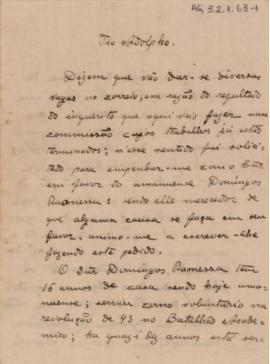 AG 3.2.1.63-1
Tio Adolpho.
Dizem que vão dar-se diversas
vagas no correio, em razão do resultado
do inquerito que aqui veis fazer uma
commissão cujos trabalhos já estão
terminados; n'esse sentido fui solici-
tado para empenhar-me com o Snr
em favor do amanuense Domingos
sendo elle merecedor de
que alguma cousa se faça em seu
favor, animo-me a escrever-lhe
fazendo este pedido.
O dito Domingos tem
16 annos de casa sendo hoje ama-
nuense; serviu como voluntario na
revolução de 93 no Batalhão Acade-
mico; ha quasi dez annos está